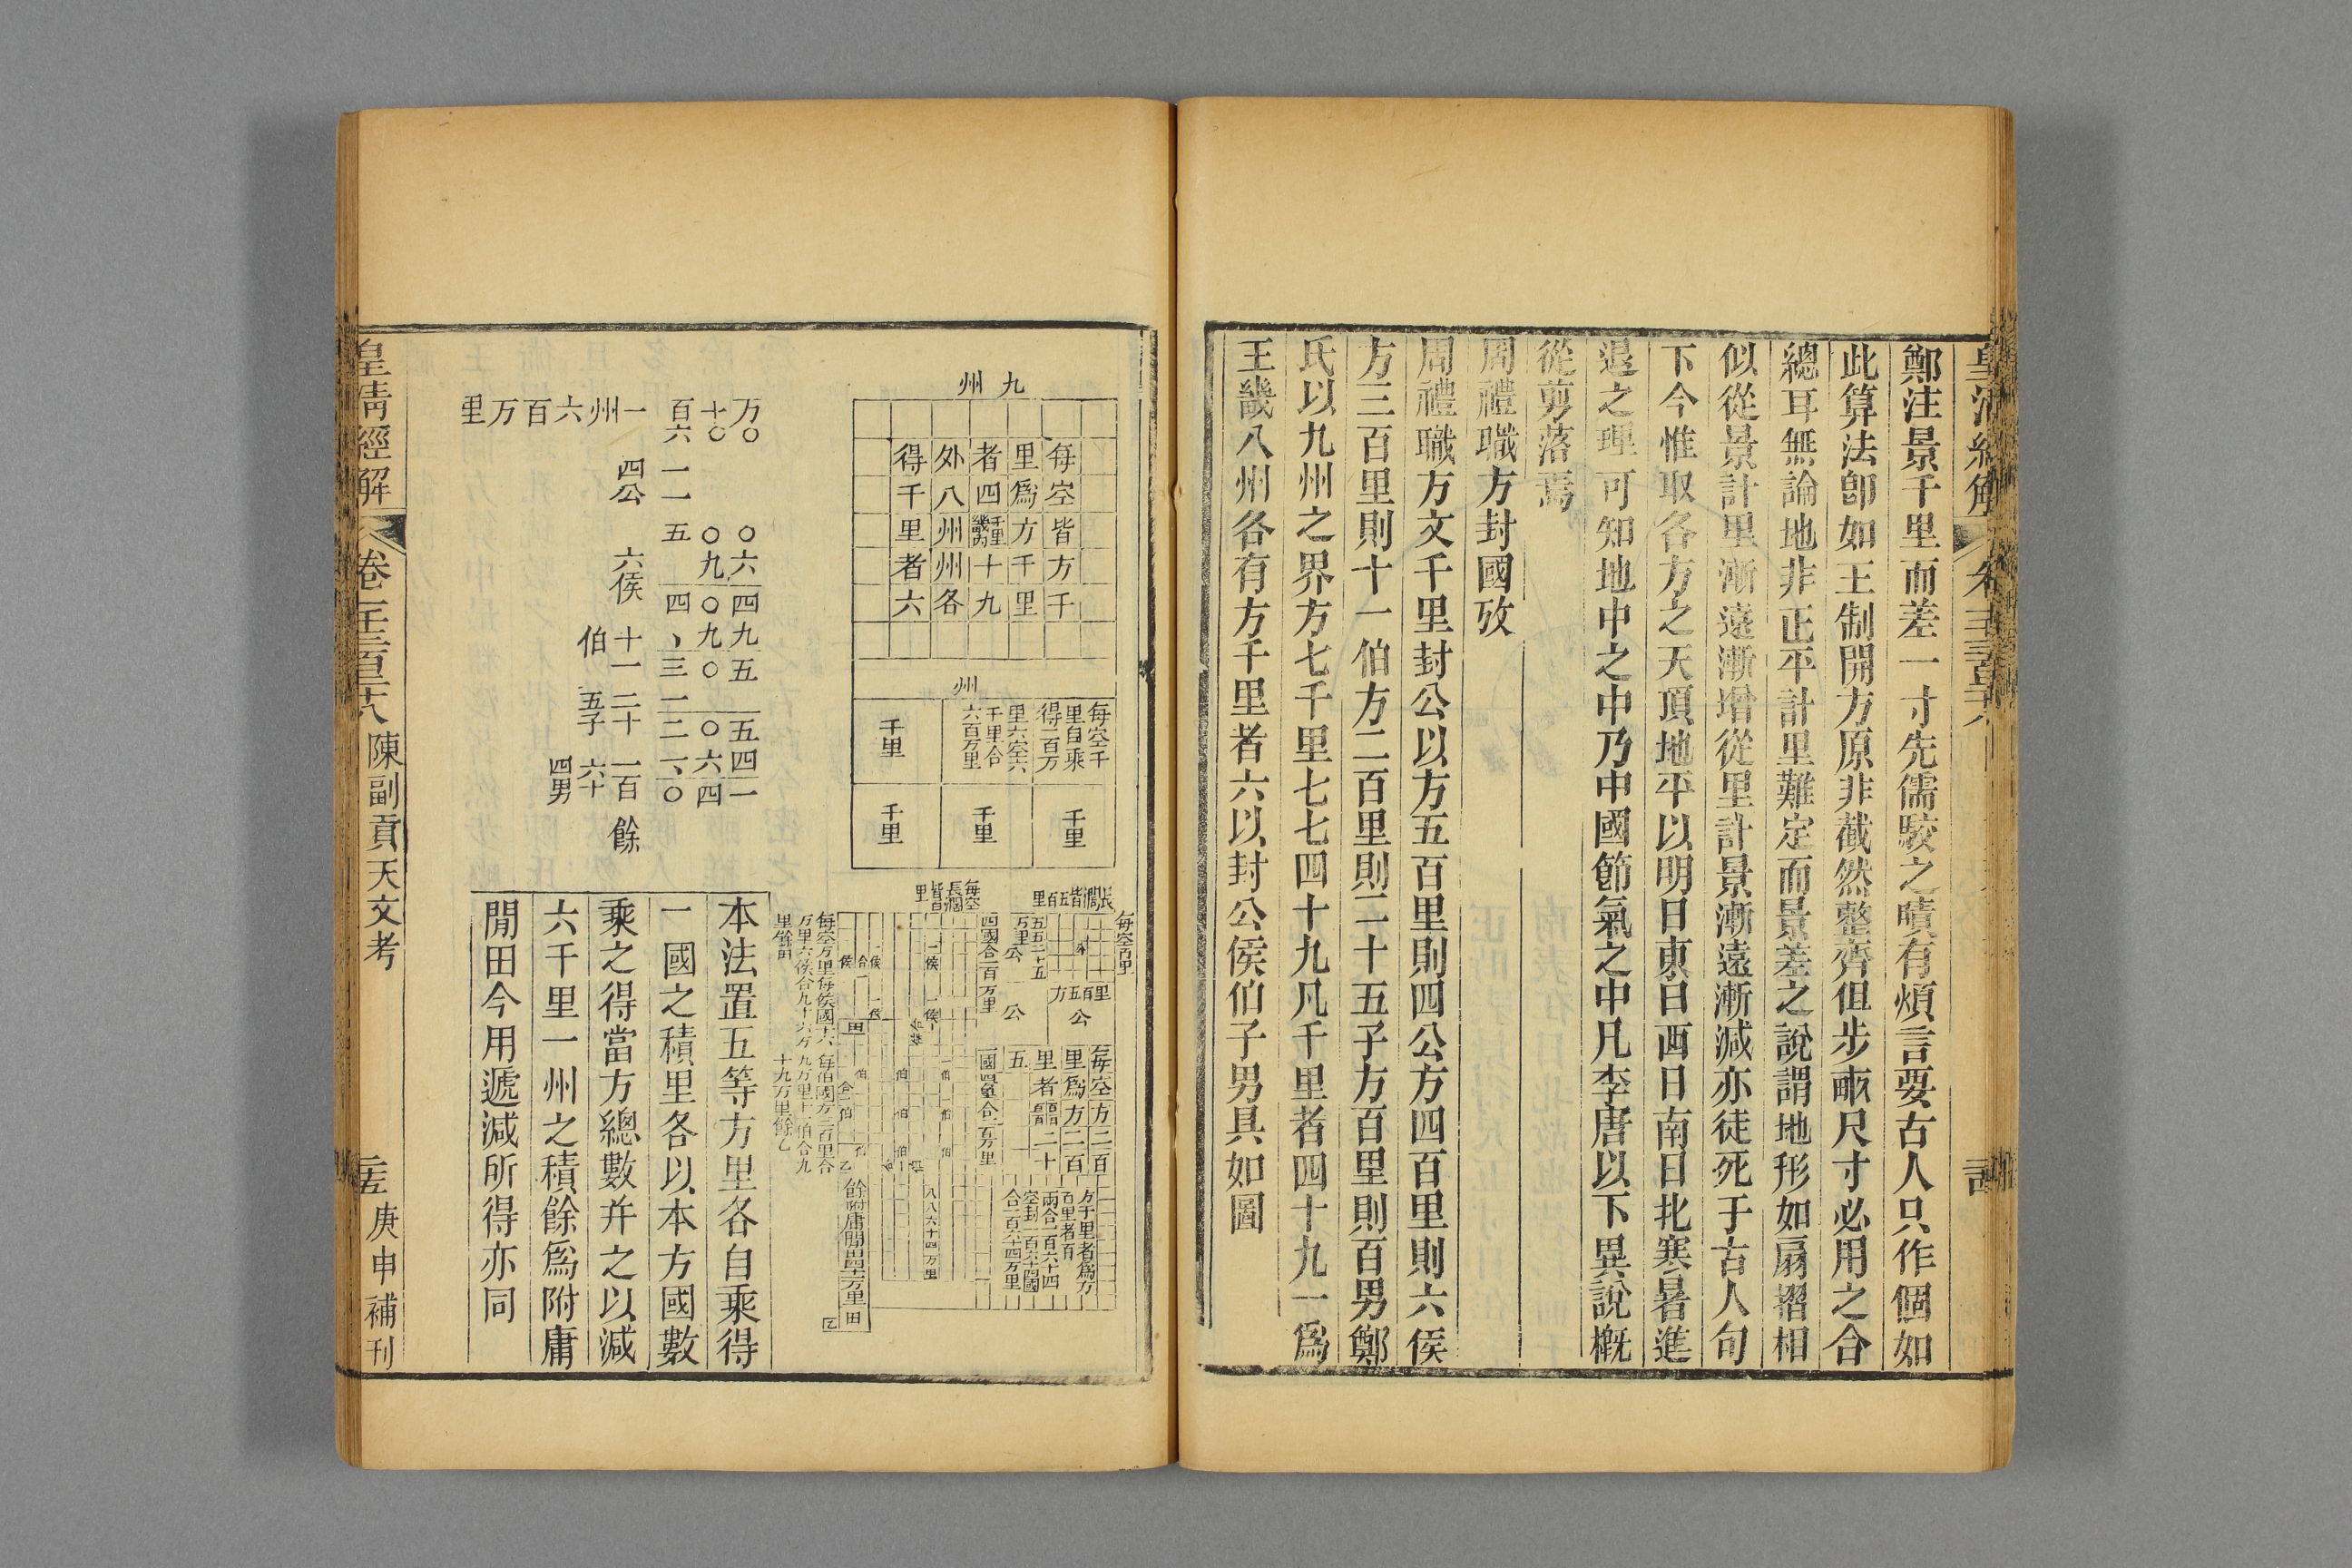 鄭注景千里而差一寸先儒駮之嘖有煩言要古人只作個如
此算法卽如王制開方原非截然整齊但步畝尺寸必用之合
總耳無論地非正平計里難定而景差之說謂地形如扇摺相
似從景計里漸遠漸增從里計景漸遠漸減亦徒死于古人句
下今惟取各方之天頂地平以明日東日西日南日北寒暑進
退之理可知地中之中乃中國節氣之中凡李唐以下異說槪
從剪落焉
周禮職方封國攷
周禮職方文千里封公以方五百里則四公方四百里則六侯
方三百里則十一伯方二百里則二十五子方百里則百男鄭
氏以九州之界方七千里七七四十九凡千里者四十九一爲
王畿八州各有方千里者六以封公侯伯子男具如圖
九州
每空皆方千
里爲方千里
者四十九
外八州州各
得千里者六
州
每空千
里自乘
得一百万
里六空六
千里合
六百万里
千里
千里
千里
千里
每空百里
公
公
公
四國合一百万里
每空方二百
里爲方二百
里者
二十
五
方千里者爲方
百里者百
兩合一百六十四
空封一百六十四國
合一百六十四万里
八八六十四万里
每空万里每侯國十六
万里六侯合九十六万
里餘田
每伯國方三百里合
九万里十一伯合九
十九万里餘乙
本法置五等方里各自乘得
一國之積里各以本方國數
乘之得當方總數并之以減
六千里一州之積餘爲附庸
閒田今用遞減所得亦同
一州六百万里
四公
六侯
十一伯
二十五子
一百六十四男
餘
皇淸經解
陳副貢天文考
庚申補刊